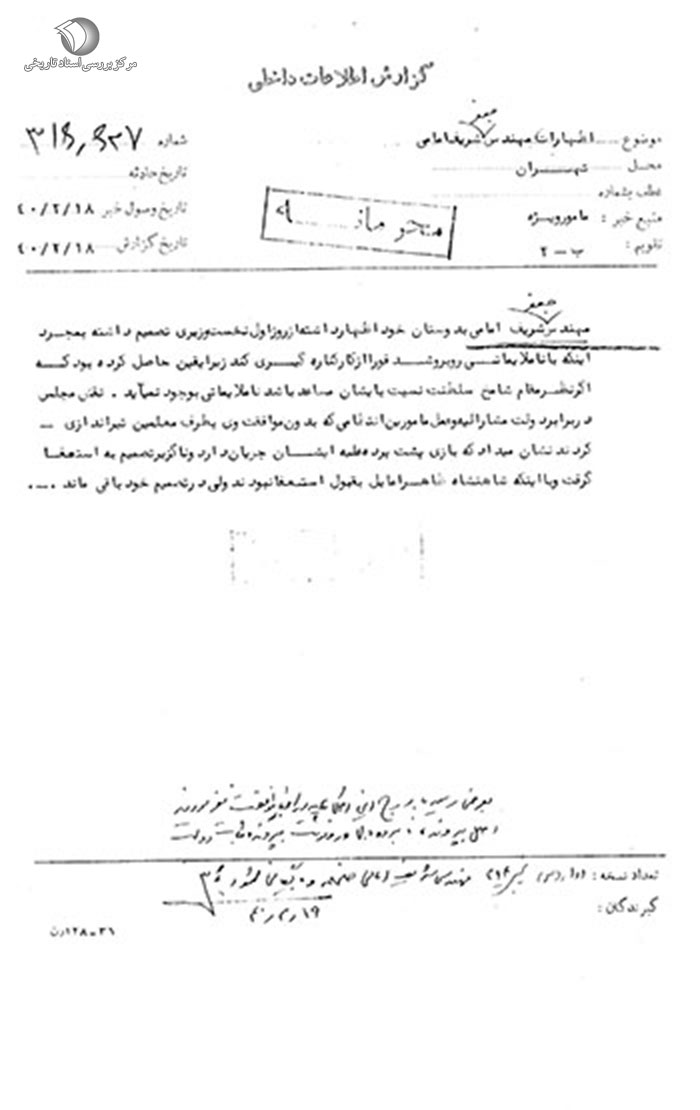 مرکز بررسی اسناد تاریخی
گزارش اطلاعات داخلی
جعفر
موضوع اظهارات مهندس شریف امامی
شماره ۳۱۵٫۵۲۷
محل تهران
تاریخ حادثه
عطف بشماره
منبع خبر : مامور ویژه
تاریخ وصول خبر ۴۰/۲/۱۸
محرمانه
تقویم : ب - ۲
تاریخ گزارش ۴۰/۲/۱۸
جعفر
مهندس شریف امامی بدوستان خود اظهار داشته از روز اول نخست وزیری تصمیم داشته بمجرد
اینکه با ناملایماتی روبرو شد فورا از کار کناره گیری کند زیرا یقین حاصل کرده بود که
اگر نظر مقام شامخ سلطنت نسبت بایشان مساعد باشد ناملایماتی بوجود نمیآید . نقش مجلس
در برابر دولت مشارالیه و عمل مامورین انتظامی که بدون موافقت وی بطرف معلمین تیراندازی ــ
کردند نشان میداد که بازی پشت پرده علیه ایشان جریان دارد و ناگزیر تصمیم به استعفا
گرفت و با اینکه شاهنشاه ظاهرا مایل بقبول استعفا نبودند ولی در تصمیم خود باقی ماند ....
بعرض رسید
تعداد نسخه :
گیرندگان :
۱۹ ر ۲ ر ۴۰
۳۱-۱۲۸رن